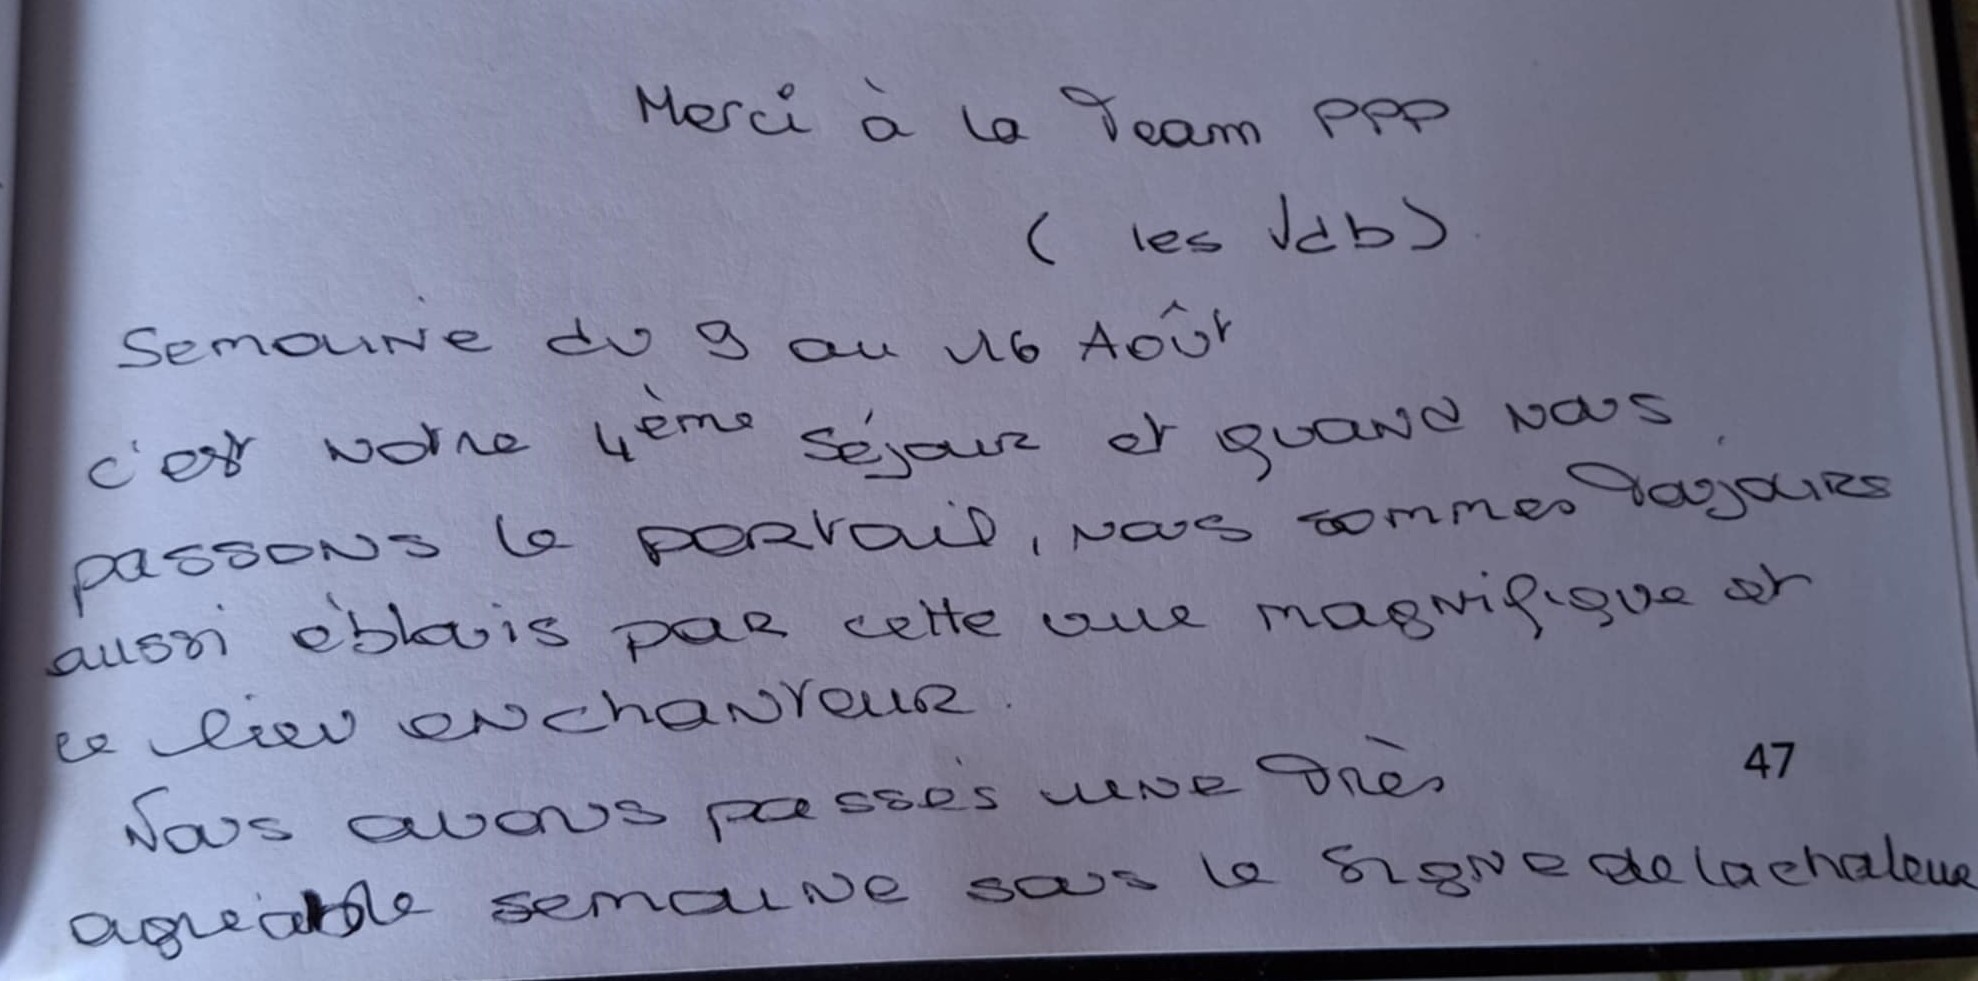 Merci à la Team PPP
( les Vdb)
Semaine du 9 au 16 Août
c'est notre 4ème séjour et quand nous
passons le portail, nous sommes toujours
aussi éblouis par cette vue magnifique et
ce lieu enchanteur.
Nous avons passés une très
47
agréable semaine sous le signe de la chaleur